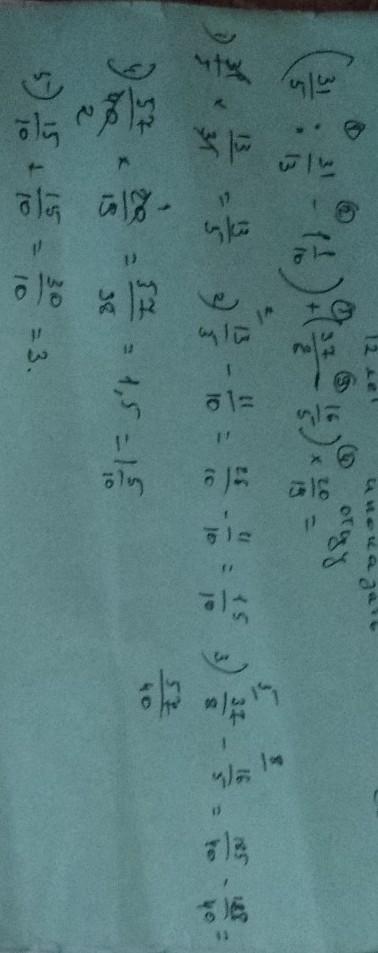 12 лет
отдд
① ② ⑤ ③ ④
(31/5 : 31/13 - 1 1/10) + (37/8 - 16/5) × 20/19 =
1) 31/5 × 13/31 = 13/5 2) 13/5 - 11/10 = 26/10 - 11/10 = 15/10 3) 37/8 - 16/5 = 185/40 - 128/40 =
57/40
4) 57/40 × 20/19 = 57/38 = 1,5 = 1 5/10
5) 15/10 + 15/10 = 30/10 = 3.